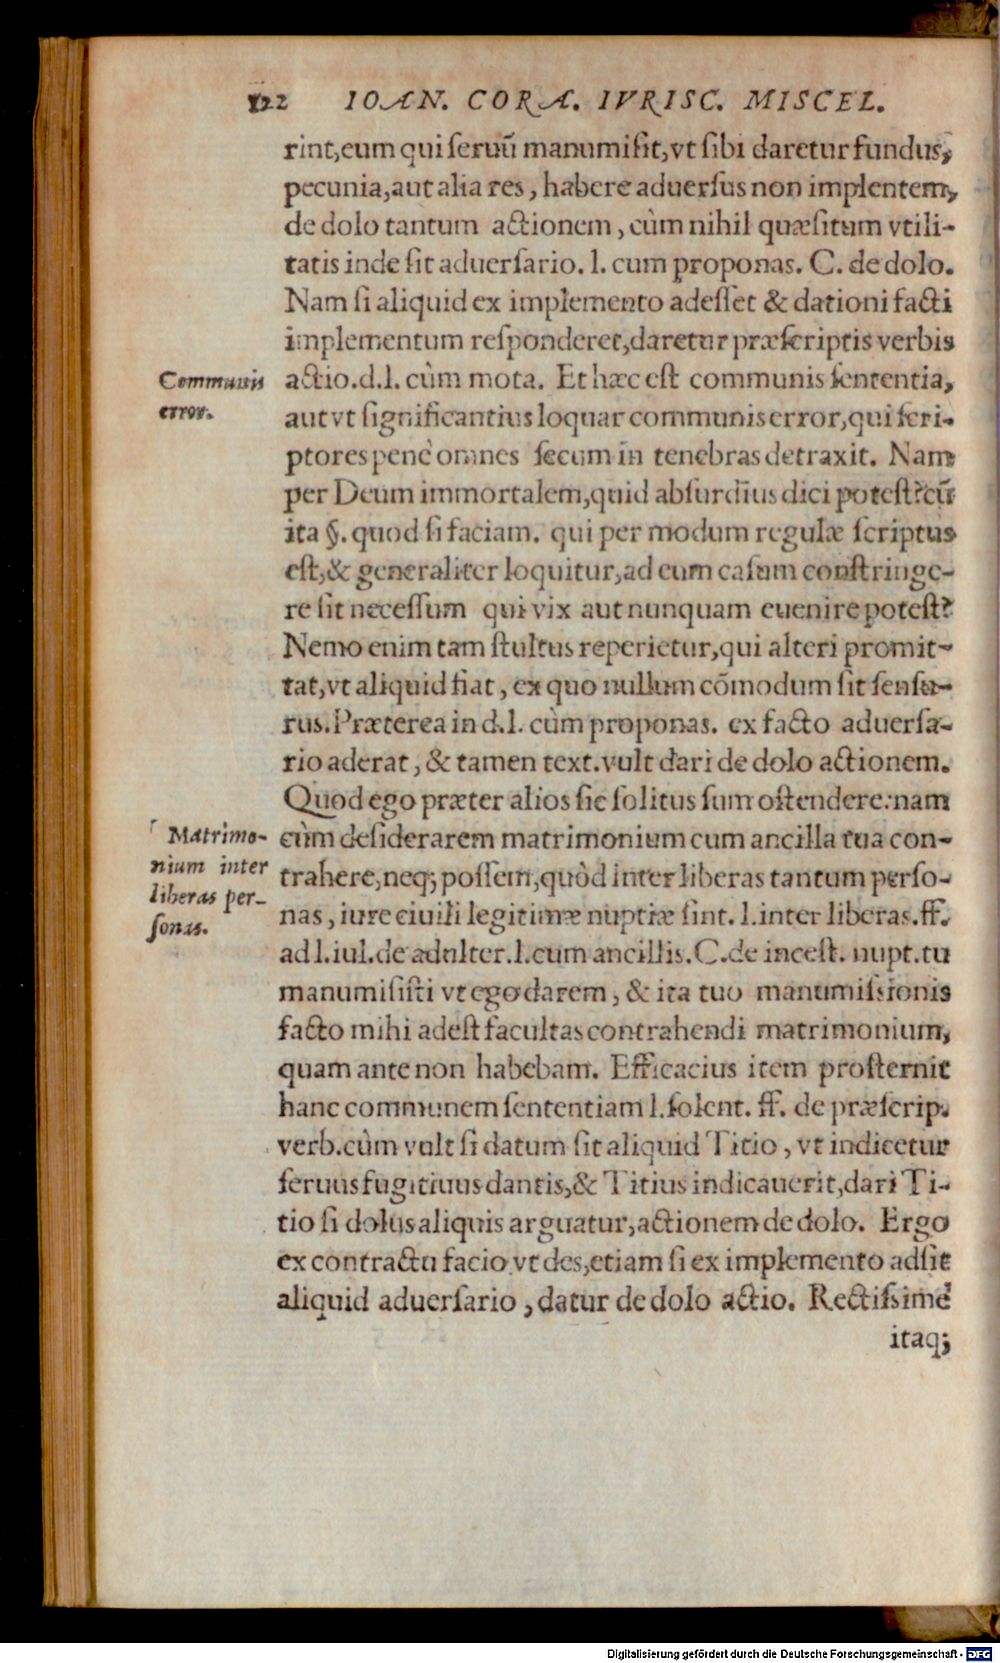 122 IOAN. CORA. IVRISC. MISCEL.
rint,eum qui ſeruū manumiſit,vt ſibi daretur fundus,
pecunia,aut alia res, habere aduerſus non implentem,
de dolo tantum actionem, cùm nihil quæſitum vtili-
tatis inde ſit aduerſario. l. cum proponas. C. de dolo.
Nam ſi aliquid ex implemento adeſſet & dationi facti
implementum reſponderet,daretur præſcriptis verbis
Communis
error.
actio.d.l. cùm mota. Et hæc eſt communis ſententia,
aut vt ſignificantius loquar communis error,qui ſcri-
ptores penè omnes ſecum in tenebras detraxit. Nam
per Deum immortalem,quid abſurdius dici poteſt?cū
ita §. quod ſi faciam. qui per modum regulæ ſcriptus
eſt,& generaliter loquitur,ad eum caſum conſtringe-
re ſit neceſſum qui vix aut nunquam euenire poteſt?
Nemo enim tam ſtultus reperietur,qui alteri promit-
tat,vt aliquid fiat, ex quo nullum cōmodum ſit ſenſu-
rus.Præterea in d.l. cùm proponas. ex facto aduerſa-
rio aderat, & tamen text.vult dari de dolo actionem.
Quod ego præter alios ſic ſolitus ſum oſtendere:nam
Matrimo-
nium inter
liberas per-
ſonas.
cùm deſiderarem matrimonium cum ancilla tua con-
trahere,neq; poſſem,quòd inter liberas tantum perſo-
nas, iure ciuili legitimæ nuptiæ ſint. l.inter liberas.ff.
ad l.iul.de adulter.l.cum ancillis.C.de inceſt. nupt.tu
manumiſiſti vt ego darem, & ita tuo manumiſsionis
facto mihi adeſt facultas contrahendi matrimonium,
quam ante non habebam. Efficacius item proſternit
hanc communem ſententiam l.ſolent. ff. de præſcrip.
verb.cùm vult ſi datum ſit aliquid Titio, vt indicetur
ſeruus fugitiuus dantis,& Titius indicauerit,dari Ti-
tio ſi dolus aliquis arguatur,actionem de dolo. Ergo
ex contractu facio vt des,etiam ſi ex implemento adſit
aliquid aduerſario, datur de dolo actio. Rectiſsimè
itaq;
Digitalisierung gefördert durch die Deutsche Forschungsgemeinschaft - DFG